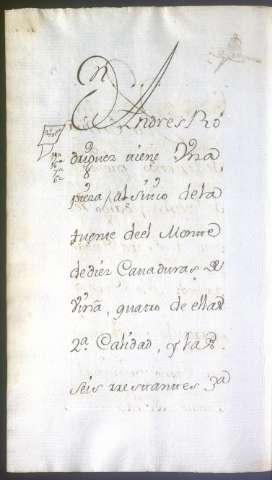 Andres Ro
driguez tiene Vna
pieza al sitio de la
fuente deel Monte
de diez Cavaduras de
Viña, quatro de ellas
2ª Calidad, y las
seis restantes 3ª